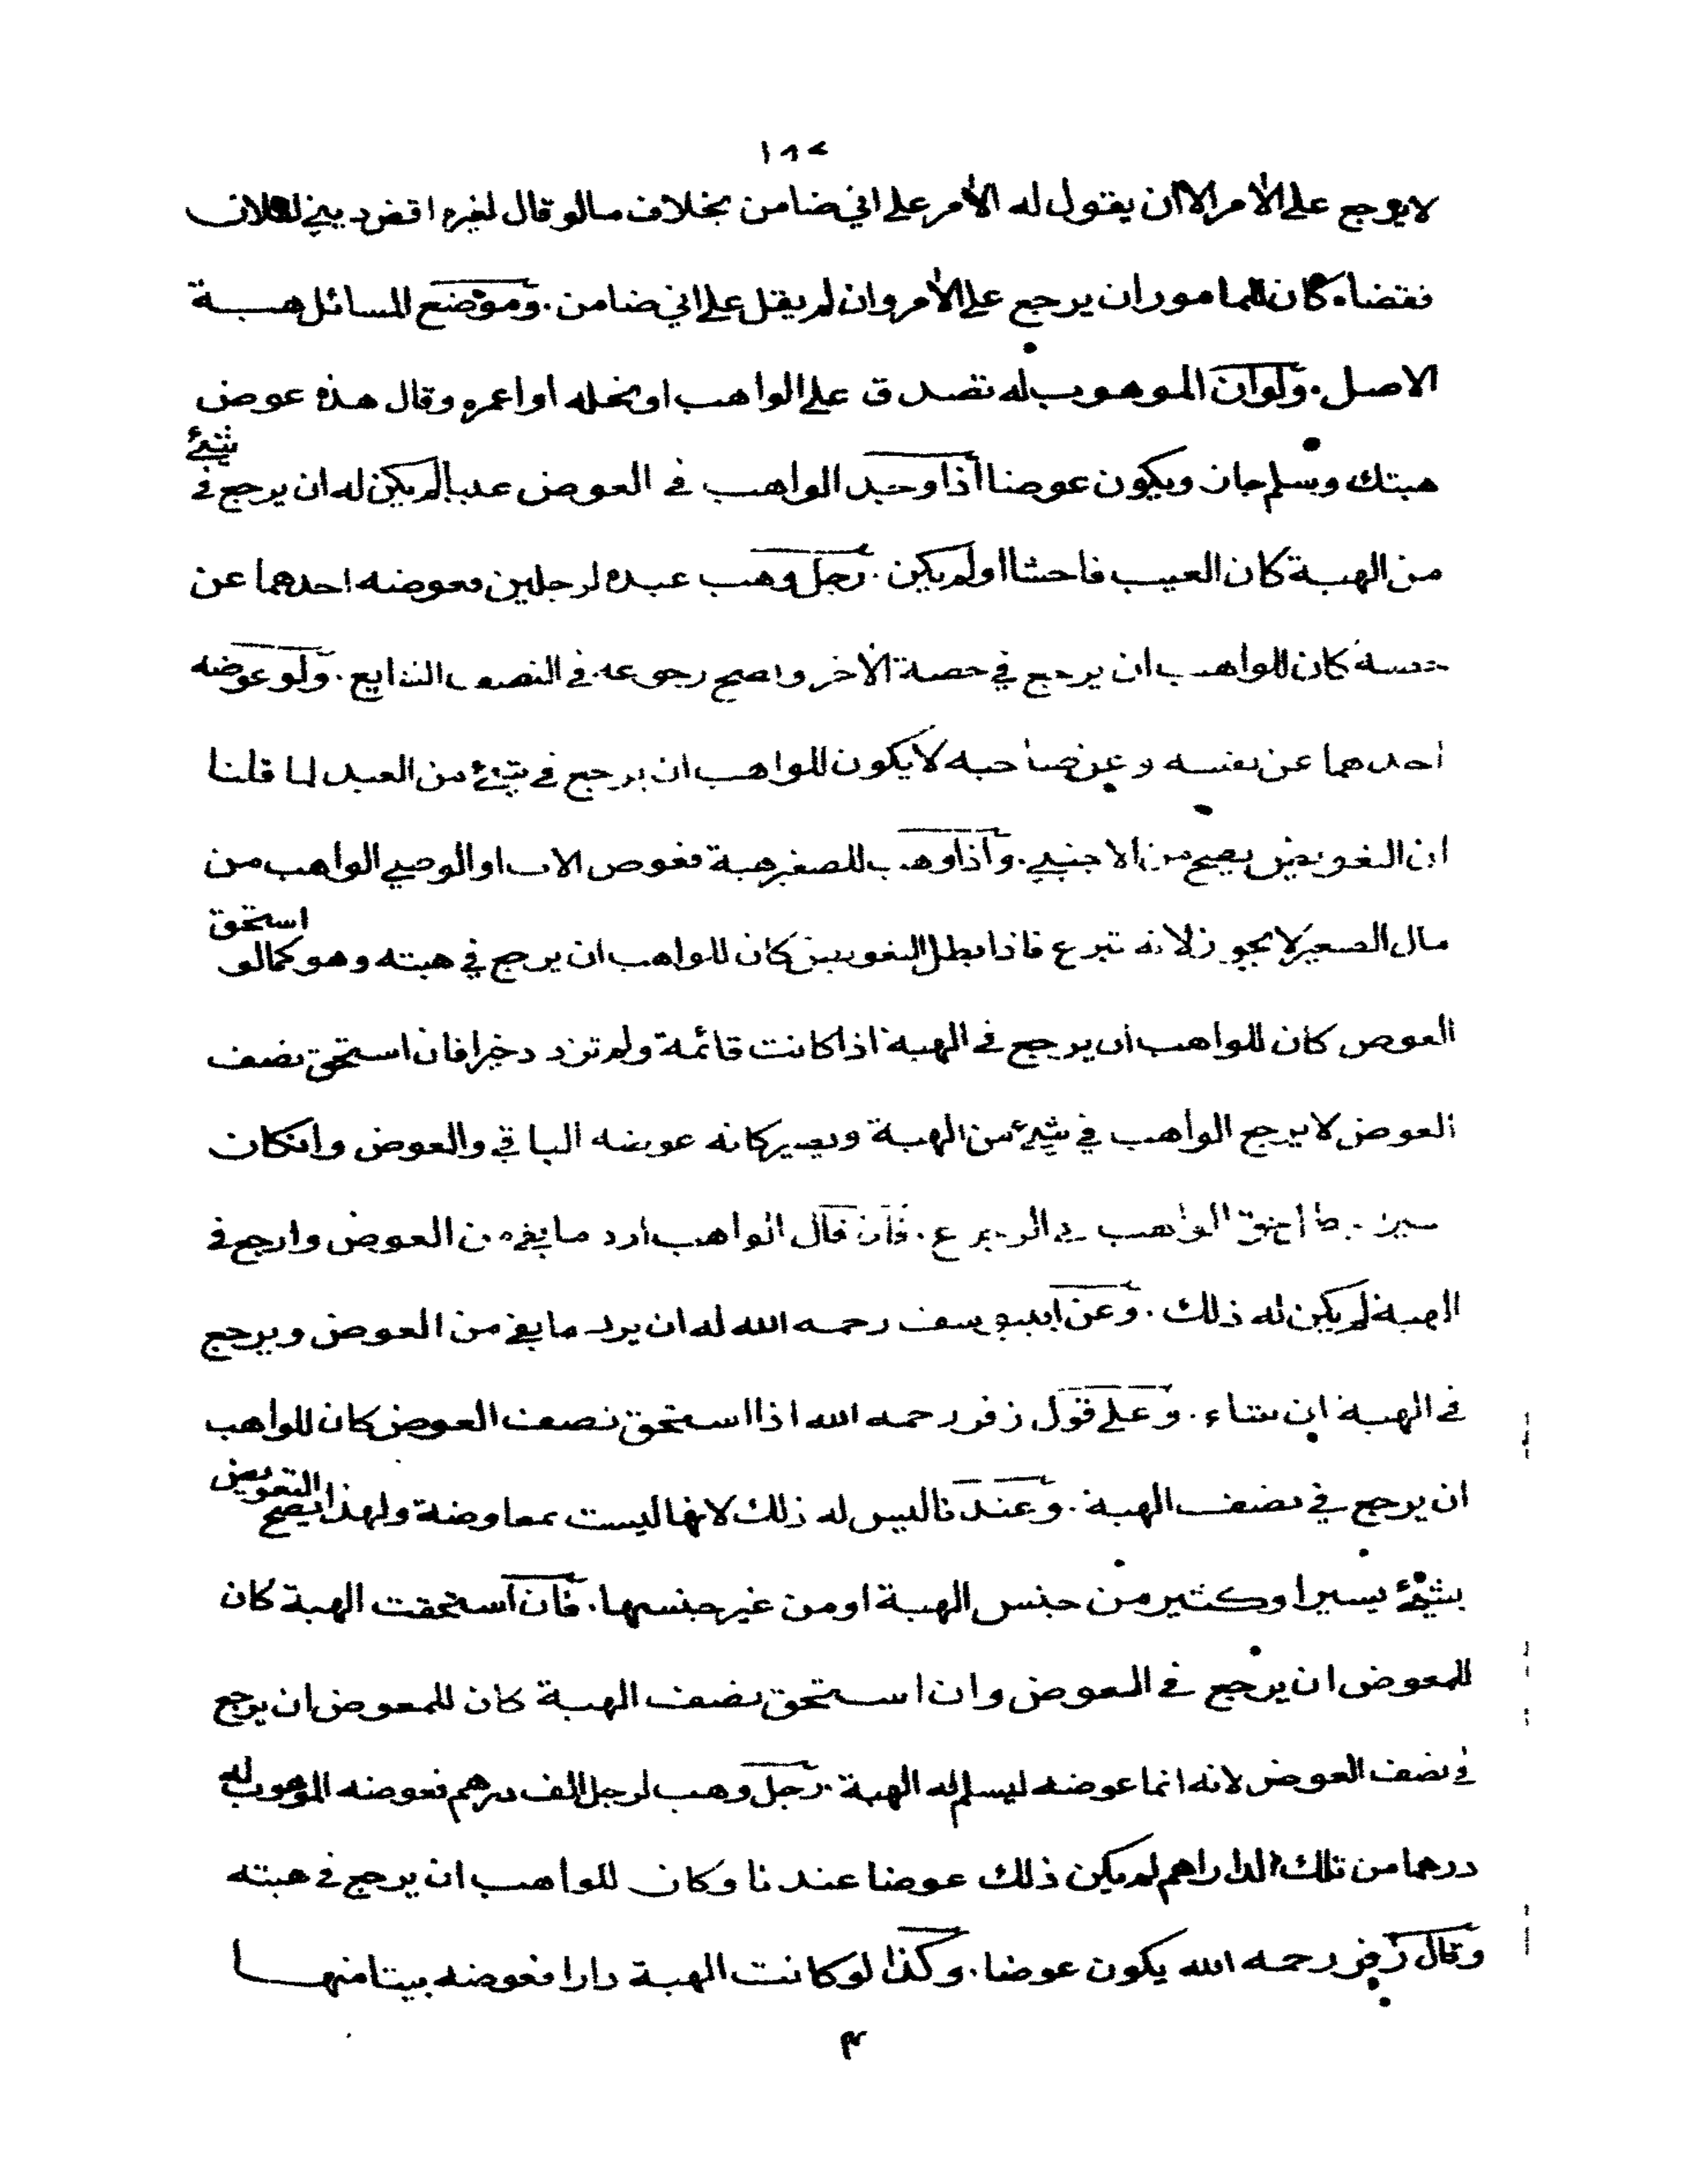 لا يرجع على الآمر الا ان يقول له الآمر على اني ضامن بخلاف ما لو قال لغيره اقض ديني لفلان
فقضاه كان للمامور ان يرجع على الآمر وان لم يقل على اني ضامن . وموضع المسائل هبة
الاصل . ولو ان الموهوب له تصدق على الواهب او نحله او اعمره وقال هذه عوض
هبتك وسلم جاز ويكون عوضا اذا وجد الواهب في العوض عيبا لم يكن له ان يرجع في شئ
من الهبة كان العيب فاحشا او لم يكن . رجل وهب عبده لرجلين فعوضه احدهما عن
حصته كان للواهب ان يرجع في حصة الآخر و صح رجوعه في النصف الشايع . ولو عوضه
احدهما عن نفسه وعن صاحبه لا يكون للواهب ان يرجع في شئ من العبد لما قلنا
ان التعويض يصح من الاجنبي . واذا وهب للصغير هبة فعوض الاب او الوصي الواهب من
مال الصغير لا يجوز لانه تبرع فاذا بطل التعويض كان للواهب ان يرجع في هبته وهو كما لو استحق
العوض كان للواهب ان يرجع في الهبة اذا كانت قائمة ولم تزدد خيرا فان استحق نصف
العوض لا يرجع الواهب في شئ من الهبة ويصير كانه عوضه الباقي والعوض وان كان
الواهب في . فان قال الواهب ارد ما بقي من العوض وارجع في
الهبة لم يكن له ذلك . وعن ابي يوسف رحمه الله له ان يرد ما بقي من العوض ويرجع
في الهبة ان شاء . وعلى قول زفر رحمه الله اذا استحق نصف العوض كان للواهب
ان يرجع في نصف الهبة . وعندنا ليس له ذلك لانها ليست بمعاوضة ولهذا يصح التعويض
بشئ يسير او كثير من جنس الهبة او من غير جنسها . فان استحقت الهبة كان
للمعوض ان يرجع في العوض وان استحق نصف الهبة كان للمعوض ان يرجع
في نصف العوض لانه انما عوضه ليسلم له الهبة . رجل وهب لرجل الف درهم فعوضه الموهوب له
درهما من تلك الدراهم لم يكن ذلك عوضا عندنا وكان للواهب ان يرجع في هبته
وقال زفر رحمه الله يكون عوضا . وكذا لو كانت الهبة دارا فعوضه بيتا منها